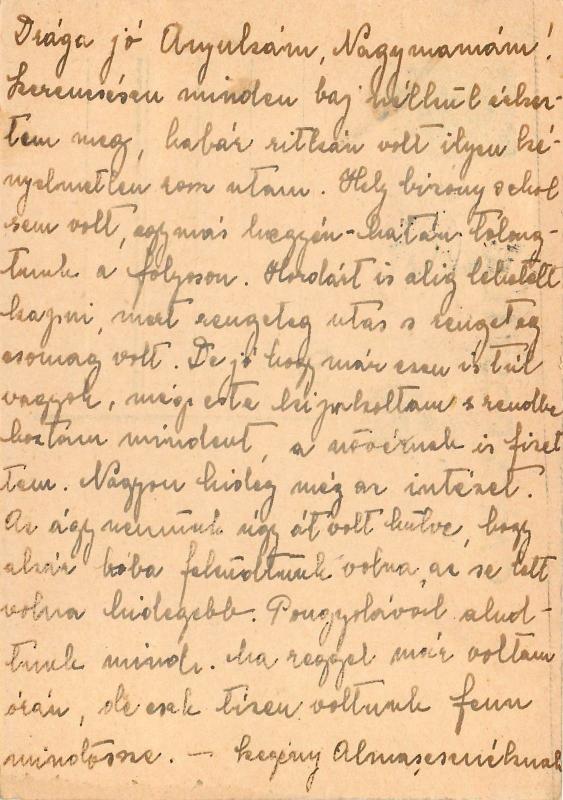 Drága jó Anyukám, Nagymamám!
Szerencsésen minden baj nélkül érkez-
tem meg, habár ritkán volt ilyen ké-
nyelmetlen rossz utam. Hely bizony sehol
sem volt, egymás hegyén-hátán tolong-
tunk a folyoson. Hordárt is alig lehetett
kapni, mert rengeteg utas s rengeteg
csomag volt. De jó hogy már ezen is túl
vagyok, még este kipakoltam s rendbe
hoztam mindent, a nővérnek is fizet
tem. Nagyon hideg még az intézet.
Az ágyneműnk úgy át volt hűlve, hogy
akár hóba feküdtünk volna, az se lett
volna hidegebb. Pongyolával alud-
tunk mind. Ma reggel már voltam
órán, de csak tizen voltunk fenn
mindössze. — Szegény